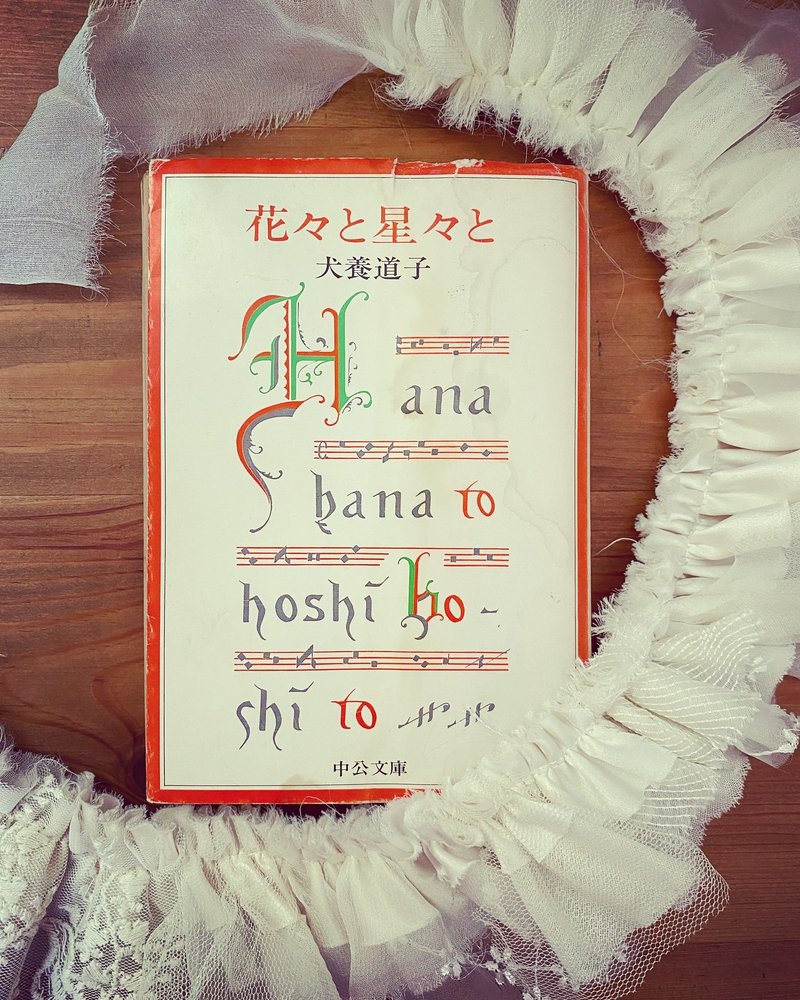 花々と星々と
犬養道子
Hana
bana to
hoshi bo-
shi to
中公文庫